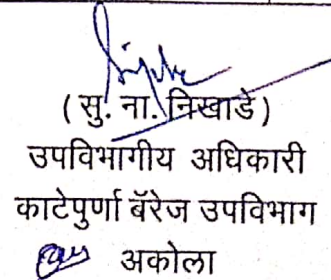 (सु. ना. निखाडे)
उपविभागीय अधिकारी
काटेपुर्णा बॅरेज उपविभाग
अकोला